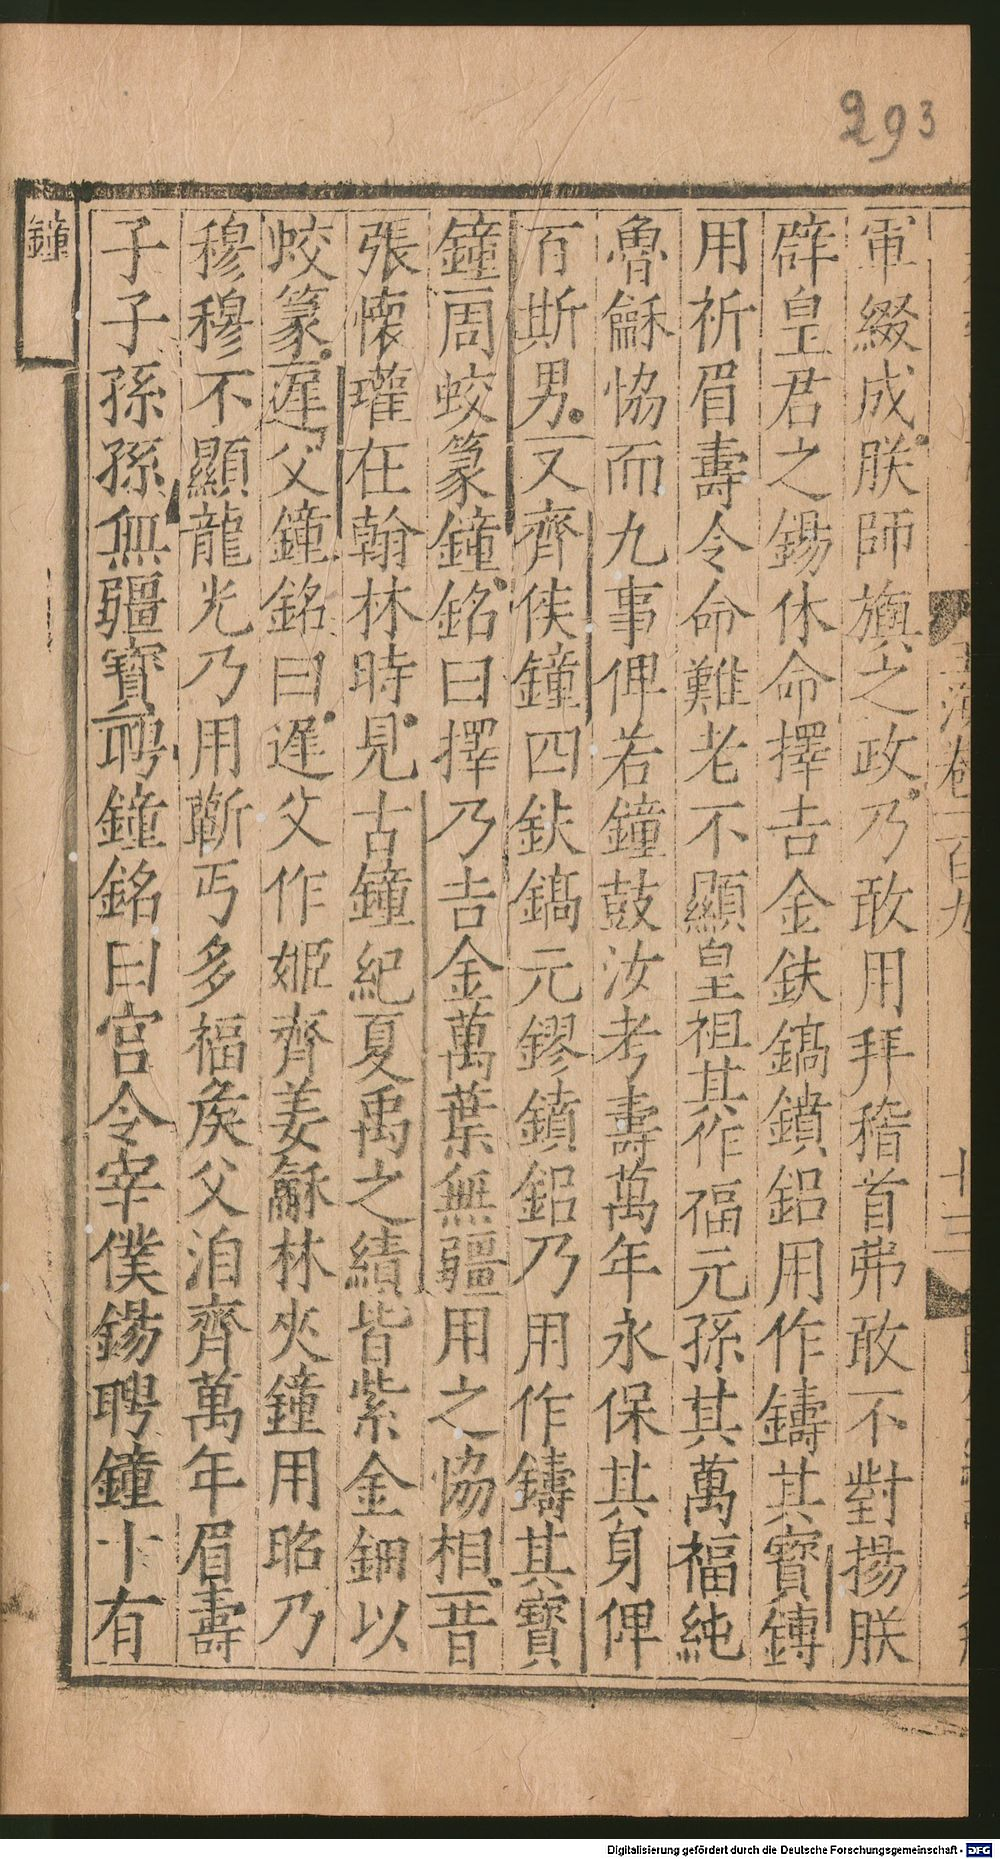 293
軍綴成朕師旟之政乃敢用拜稽首弗敢不對揚朕
辟皇君之錫休命擇吉金鈇鎬鐼鋁用作鑄其寶鎛
用祈眉壽令命難老不顯皇祖其作福元孫其萬福純
魯龢協而九事俾若鐘鼓汝考壽萬年永保其身俾
百斯男又齊侯鐘四鈇鎬元鏐鐼鋁乃用作鑄其寶
鐘周蛟篆鐘銘曰擇乃吉金萬葉無疆用之協相昔
張懷瓘在翰林時見古鐘紀夏禹之績皆紫金鈿以
蛟篆遲父鐘銘曰遲父作姬齊姜龢林夾鐘用昭乃
穆穆不顯龍光乃用蘄丐多福侯父洎齊萬年眉壽
子子孫孫無疆寶聘鐘銘曰宮令宰僕錫聘鐘十有
鐘
卷一百九
十三
Digitalisierung gefördert durch die Deutsche Forschungsgemeinschaft - DFG